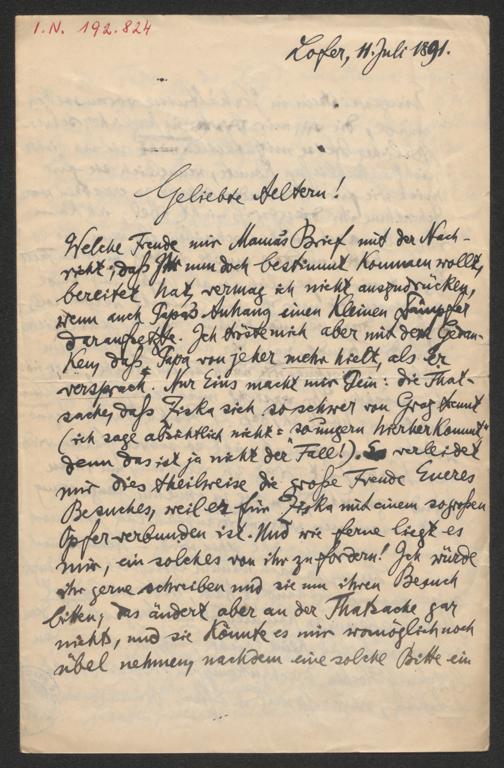 I.N. 192.824
Lofer, 11. Juli 1891.
Geliebte Aeltern!
Welche Freude mir Mamas Brief mit der Nach-
richt, daß Ihr nun doch bestimmt kommen wollt,
bereitet hat, vermag ich nicht auszudrücken,
wenn auch Papas Anhang einen kleinen Dämpfer
daraufsetzte. Ich tröste mich aber mit dem Gedan-
ken, daß Papa von jeher mehr hielt, als Er
versprach. Nur Eins macht mir Pein: die That-
sache, daß Ziska sich so schwer von Graz trennt
(ich sage absichtlich nicht: "so ungern hierher kommt"
denn das ist ja nicht der Fall!). Es verleidet
mir dies theilweise die große Freude Eueres
Besuches, weil er für Ziska mit einem so großen
Opfer verbunden ist. Und wie ferne liegt es
mir, ein solches von ihr zu fordern! Ich würde
ihr gerne schreiben und sie um ihren Besuch
bitten; das ändert aber an der Thatsache gar
nichts, und sie könnte es mir womöglich noch
übel nehmen, nachdem eine solche Bitte ein